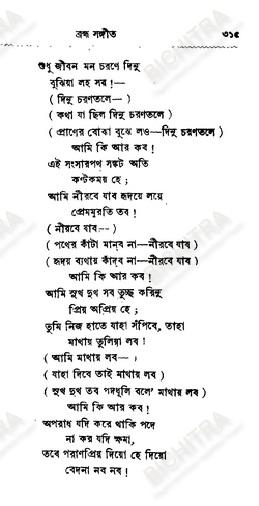 ব্রহ্ম সঙ্গীত ৩১৫
শুধু জীবন মন চরণে দিনু
বুঝিয়া লহ সব !—
( দিনু চরণতলে— )
( কথা যা ছিল দিনু চরণতলে )
( প্রাণের বোঝা বুঝে লও—দিনু চরণতলে )
আমি কি আর কব !
এই সংসারপথ সঙ্কট অতি
কণ্টকময় হে ;
আমি নীরবে যাব হৃদয়ে লয়ে
প্রেমমুরতি তব !
( নীরবে যাব-- )
( পথের কাঁটা মান্‌ব না—নীরবে যাব )
( হৃদয় ব্যথায় কাঁদ্‌ব না—নীরবে যাব )
আমি কি আর কব !
আমি সুখ দুখ সব তুচ্ছ করিনু
প্রিয় অপ্রিয় হে ;
তুমি নিজ হাতে যাহা সঁপিবে, তাহা
মাথায় তুলিয়া লব !
( আমি মাথায় লব— )
( যাহা দিবে তাই মাথায় লব )
( সুখ দুখ তব পদধূলি বলে' মাথায় লব )
আমি কি আর কব !
অপরাধ যদি করে থাকি পদে
না কর যদি ক্ষমা,
তবে পরাণপ্রিয় দিয়ো হে দিয়ো
বেদনা নব নব !
BICHITRA